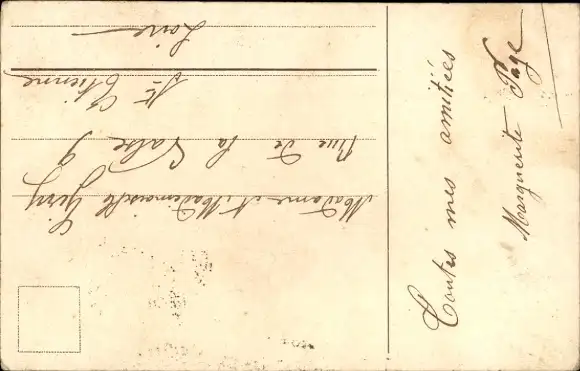 Toutes mes amitiées
Marguerite Page
Madame et Mademoiselle
Rue de la
9
St Etienne
Loire